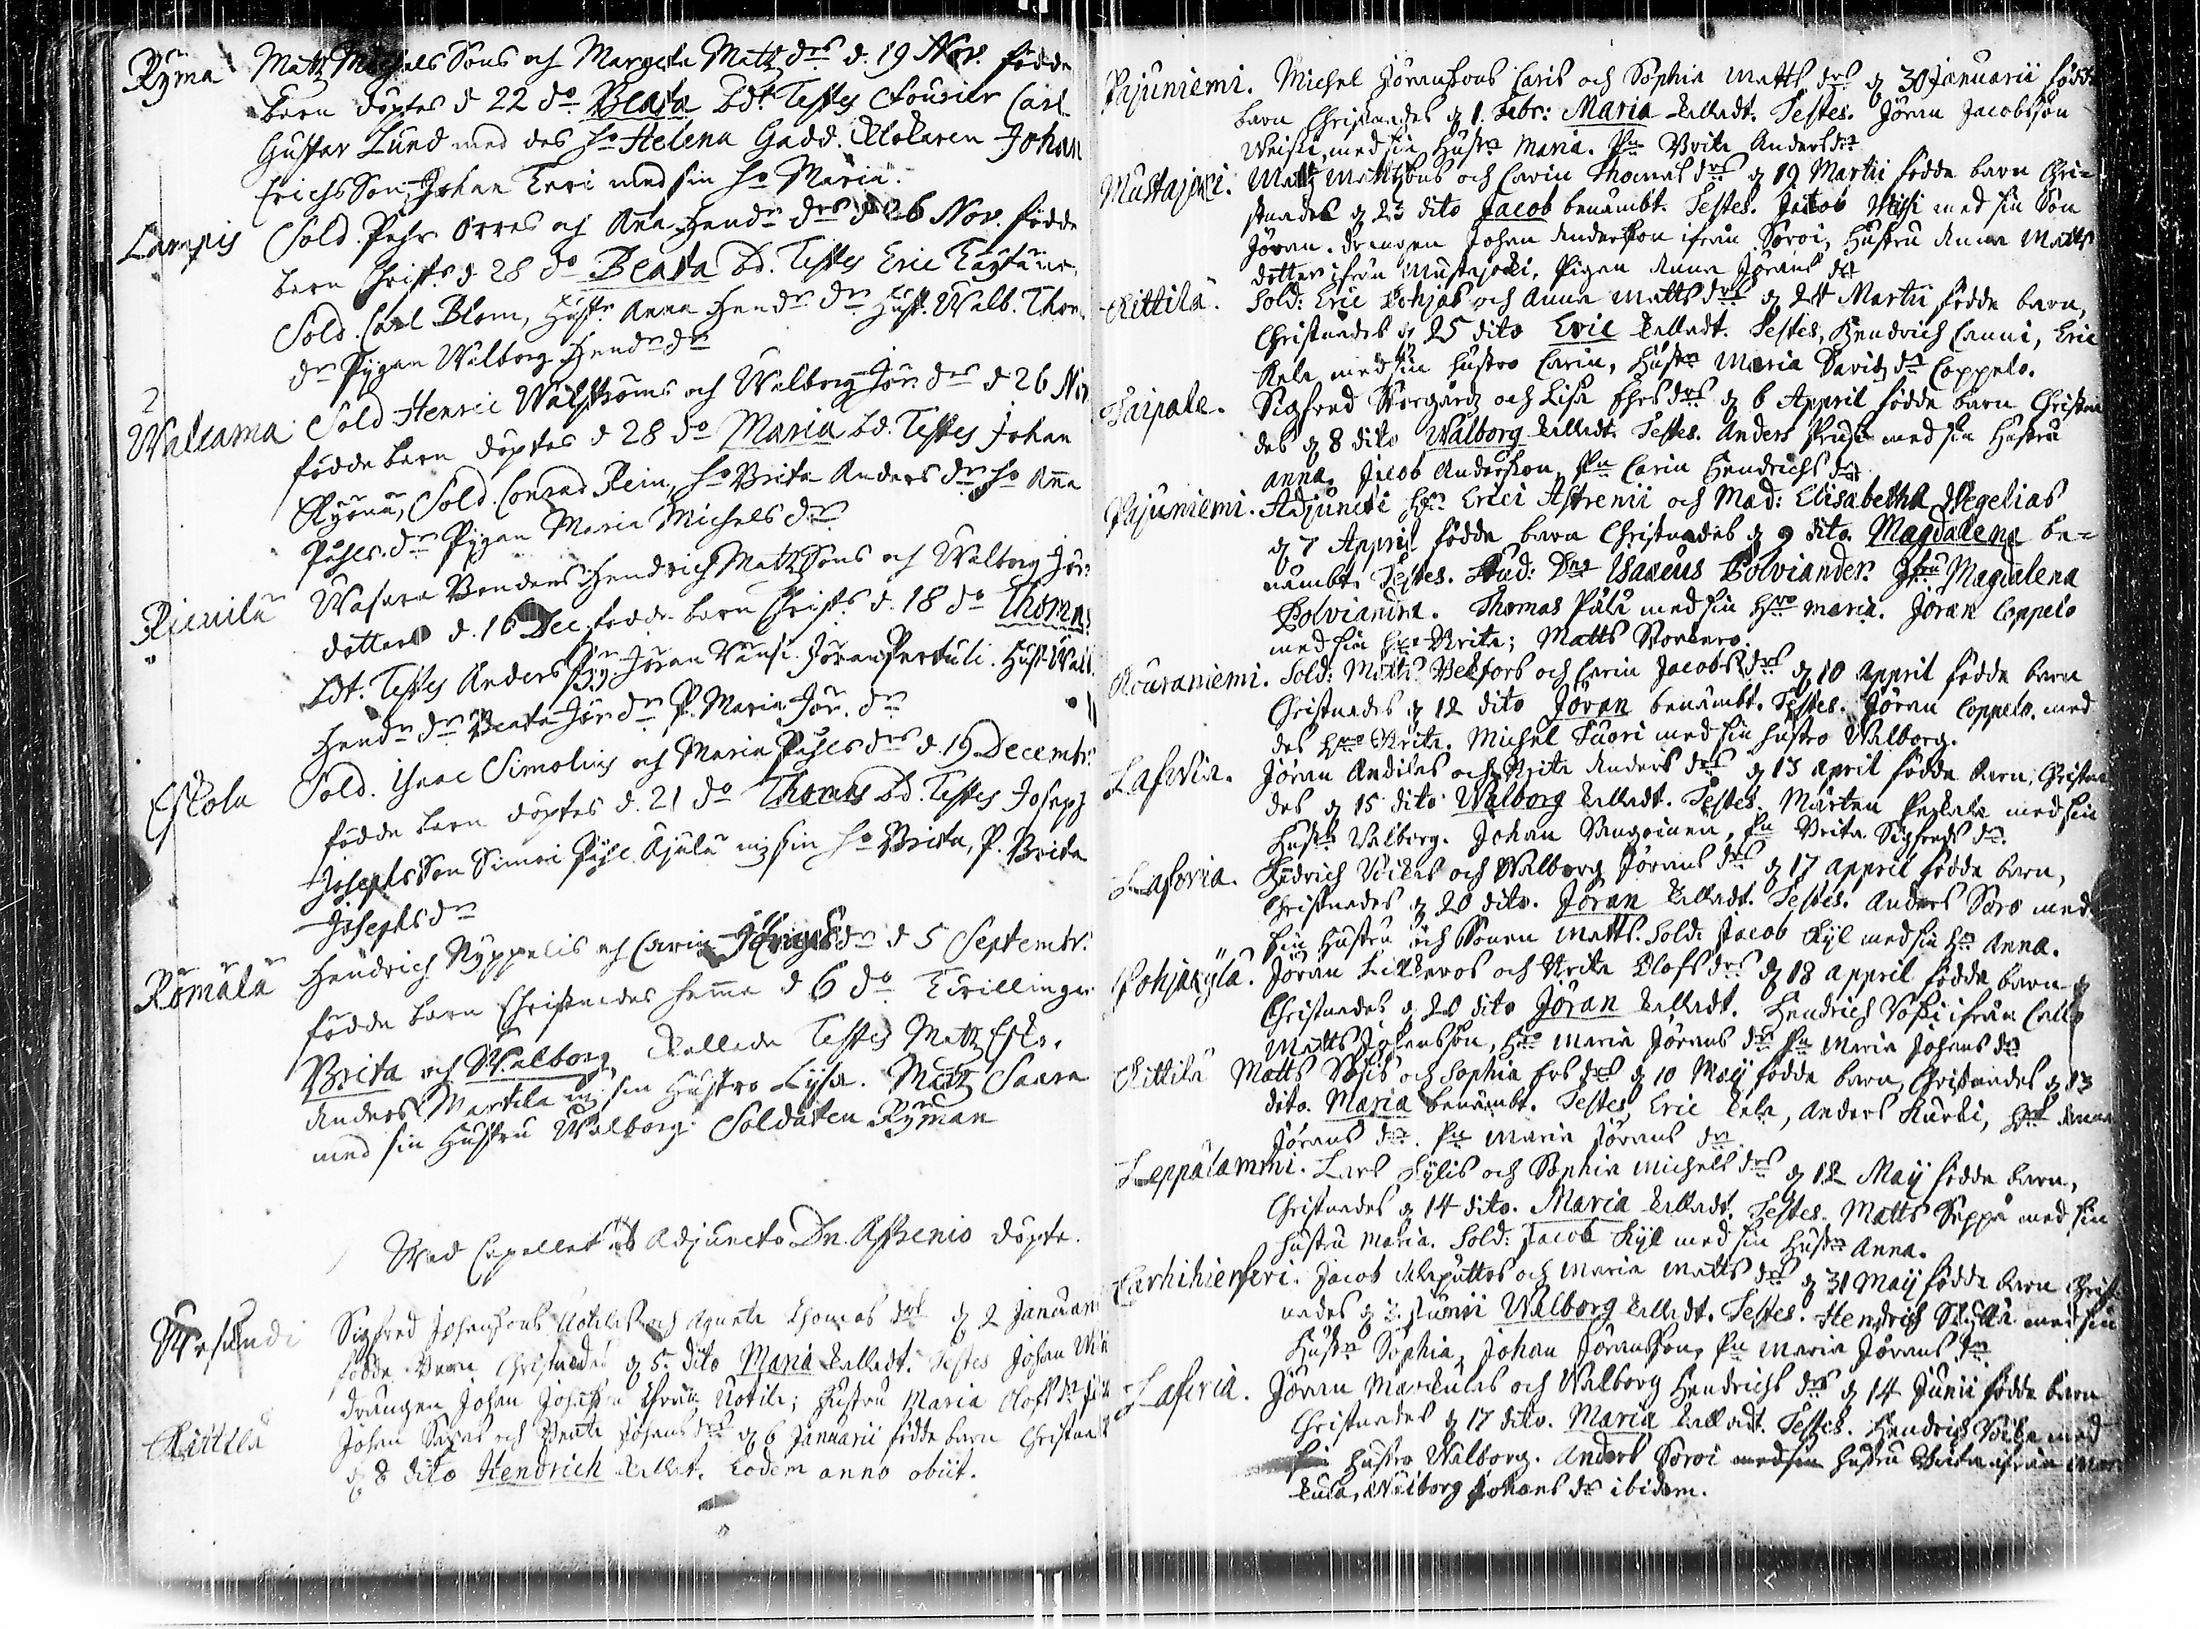 Ryma Matz Michels Sons och Margeta Matz drs d. 19 Nov. födde
barn döptes d 22 do Beata bdt Testes Fourier Carl
Gustav Lund med des ho Helena Gadd. Klokaren Johan
Erichs Son, Johan Keri med sin ho Maria.
Lampis Sold. Pehr Orres och Anna Hendr drs d 26 Nov. födde
barn Christs d 28 do Beata bd. Testes Eric
Sold. Carl Blom, Hustr Anna Hendr dr Hust. Walb. Thom.
dr Pygan Walborg Hendr dr
2
Walcama Sold Henric Wahlströms och Walborg Jör. drs d 26 Nov
födde barn döptes d 28 do Maria bd. Testes Johan
Sold. Conrad Rein, ho Brita Anders dr ho Anna
Påhls dr Pygan Maria Michels dr
Rienilä Wasara Bondens Hendrich Matz Sons och Walborg Jör.
dotters d. 16 Dec födde barn Christs d. 18 do Thomas
bdt. Testes Anders Jöran Jöran Perttuli. Hust. Walb.
Hendr dr Beata Jör dr P. Maria Jör. dr
Eskola Sold. Isaac Simolins och Maria Påhls drs d. 19 Decembr.
födde barn döptes d. 21 do Thomas bd. Testes Joseph
Josephs Son Simoi Ajulä m sin ho Brita, P. Brita
Josephs dr
Römälä Hendrich Nyppelis och Carin drs d 5 Septembr.
födde barn Christnades hema d 6 do Tvillingar
Brita och Walborg kallade Testes Matz Esko,
Anders Martila m sin Hustro Lysa. Matz Saara
med sin Hustru Walborg. Soldaten Ryman
Wed Capellet af Adjuncto Dn. Astrenio döpte.
Wesundi Sigfred Johansons Uotilas och Agneta Thomas drs d 2 Januarii
födde barn Christnades d 5. dito Maria kalladt. Testes Johan
drängen Johan Johanson ifrån Uotila; Hustru Maria Olofs dr
Kittilä Johan och Beata Johans drs d 6 Januarii födde barn Christnades
d 8 dito Hendrich kallat. Eodem anno obiit.
Pajuniemi. Michel Jöransons Caris och Sophia Matts drs d 30 Januarii födde
barn Christnades d 1. Febr: Maria kalladt. Testes. Jöran Jacobsson
med sin Hustr Maria. Pn Brita Andersdr
Mustajoki. Matz Mattsons och Carin Thomas drs d 19 Martii födde barn Chri=
stnades d 23 dito Jacob benämbt. Testes. Jacob med sin Son
Jöran. drängen Johan Anderson ifrån Soroi, Hustru Anna Matts
dotter ifrån Mustajoki, Pigan Anna Jörans dr
Kittilä. Sold: Eric Pohjas och Anna Matts drs d 24 Martii födde barn,
Christnades d 25 dito Eric kalladt. Testes, Hendrich Canni, Eric
Kela med sin hustro Carin, Hustr Maria Davids dr Coppelo.
Taipale. Sigfred Norgårds och Lisa Ers drs d 6 Appril födde barn Christna
des d 8 dito Walborg kalladt. Testes. Anders med sin Hustru
Anna, Jacob Anderson, Pn Carin Hendrichs dr
Pajuniemi. Adjuncti Hr Erici Astrenii och Mad: Elisabetha Wegelias
d 7 Appril födde barn Christnades d 9 dito Magdalena be=
nämbt. Testes. Stud: Dns Isaacus Polviander. Jfru Magdalena
Polviandra. Thomas Pälä med sin hro Maria. Jöran Coppelo
med sin hro Brita; Matts
Rouraniemi. Sold: Matts Bekfors och Carin Jacobs drs d 10 Appril födde barn
Christnades d 12 dito Jöran benämbt. Testes. Jöran Coppelo. med
des hro Brita. Michel Tuori med sin hustro Walborg.
Laseria. Jöran Andilas och Brita Anders drs d 13 April födde barn, Christna
des d 15 dito Walborg kalladt. Testes. Mårten med sin
Hustr Walborg. Johan Pn Brita Sigfreds dr.
Laseria. Hendrich och Walborg Jörans drs d 17 April födde barn,
Christnades d 20 dito. Jöran kalladt. Testes. Anders Soro med
sin Hustru och Sonen Matts. Sold: Jacob Kyl med sin hr Anna.
Pohjakylä. Jöran och Brita Olofs drs d 18 April födde barn
Christnades d 20 dito Jöran kalladt. Hendrich ifrån
Matts Johansson, hro Maria Jörans dr Pn Maria Johans dr
Kittilä Matts och Sophia Ers drs d 10 Maij födde barn, Christnades d 13
dito. Maria benämbt. Testes, Eric Kela, Anders Kurki, Anna
Jörans dr. Pn Maria Jörans dr
Leppälammi. Lars Kylis och Sophia Michels drs d 12 Maij födde barn,
Christnades d 14 dito. Maria kalladt. Testes. Matts Seppä med sin
hustru Maria. Sold: Jacob Kyl med sin Hustr Anna.
Carhihienseri. Jacob och Maria Matts drs d 31 Maij födde barn Christ
nades d Junii Walborg kalladt. Testes. Hendrich med sin
Hustr Sophia, Johan Jöransson, Pn Maria Jörans dr
Laseria. Jöran Marckulas och Walborg Hendrichs drs d 14 Junii födde barn
Christnades d 17 dito. Maria kalladt. Testes. Hendrich med
sin hustro Walborg. Anders Soroi med sin hustru Brita ifrån
Walborg Johans dr ibidem.